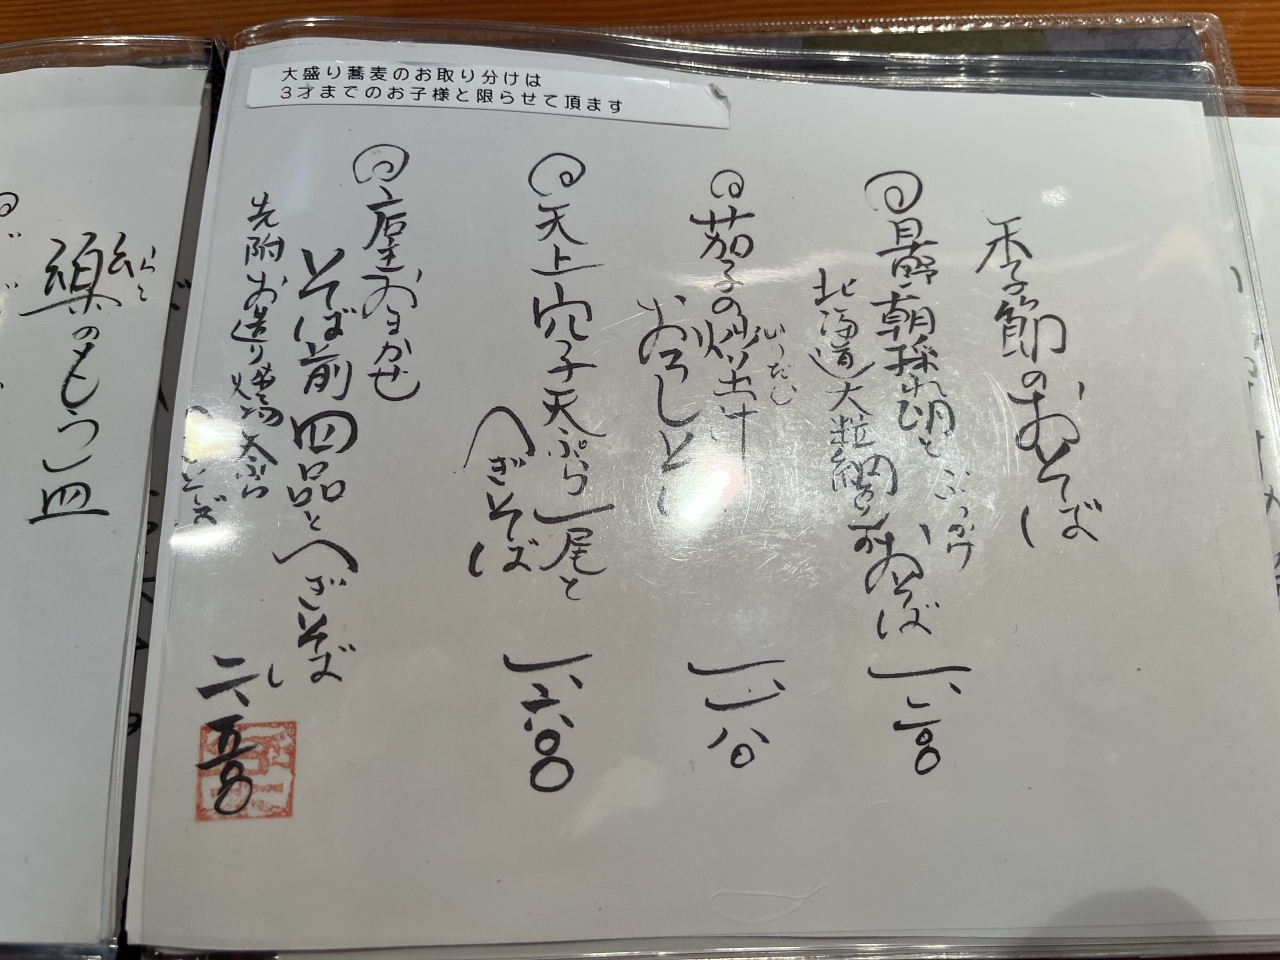 大盛り蕎麦のお取り分けは
3才までのお子様と限らせて頂ます
季節のおそば
朝採れ
ぶっかけ
おそば
北海道大粒納豆
一、二〇〇
茄子の炒出汁
いりだし
おろしそば
一、一八〇
天上穴子天ぷら一尾と
へぎそば
一、六〇〇
店主おまかせ
そば前四品とへぎそば
先附お造り
天ぷら
二、五〇〇
のもう一皿